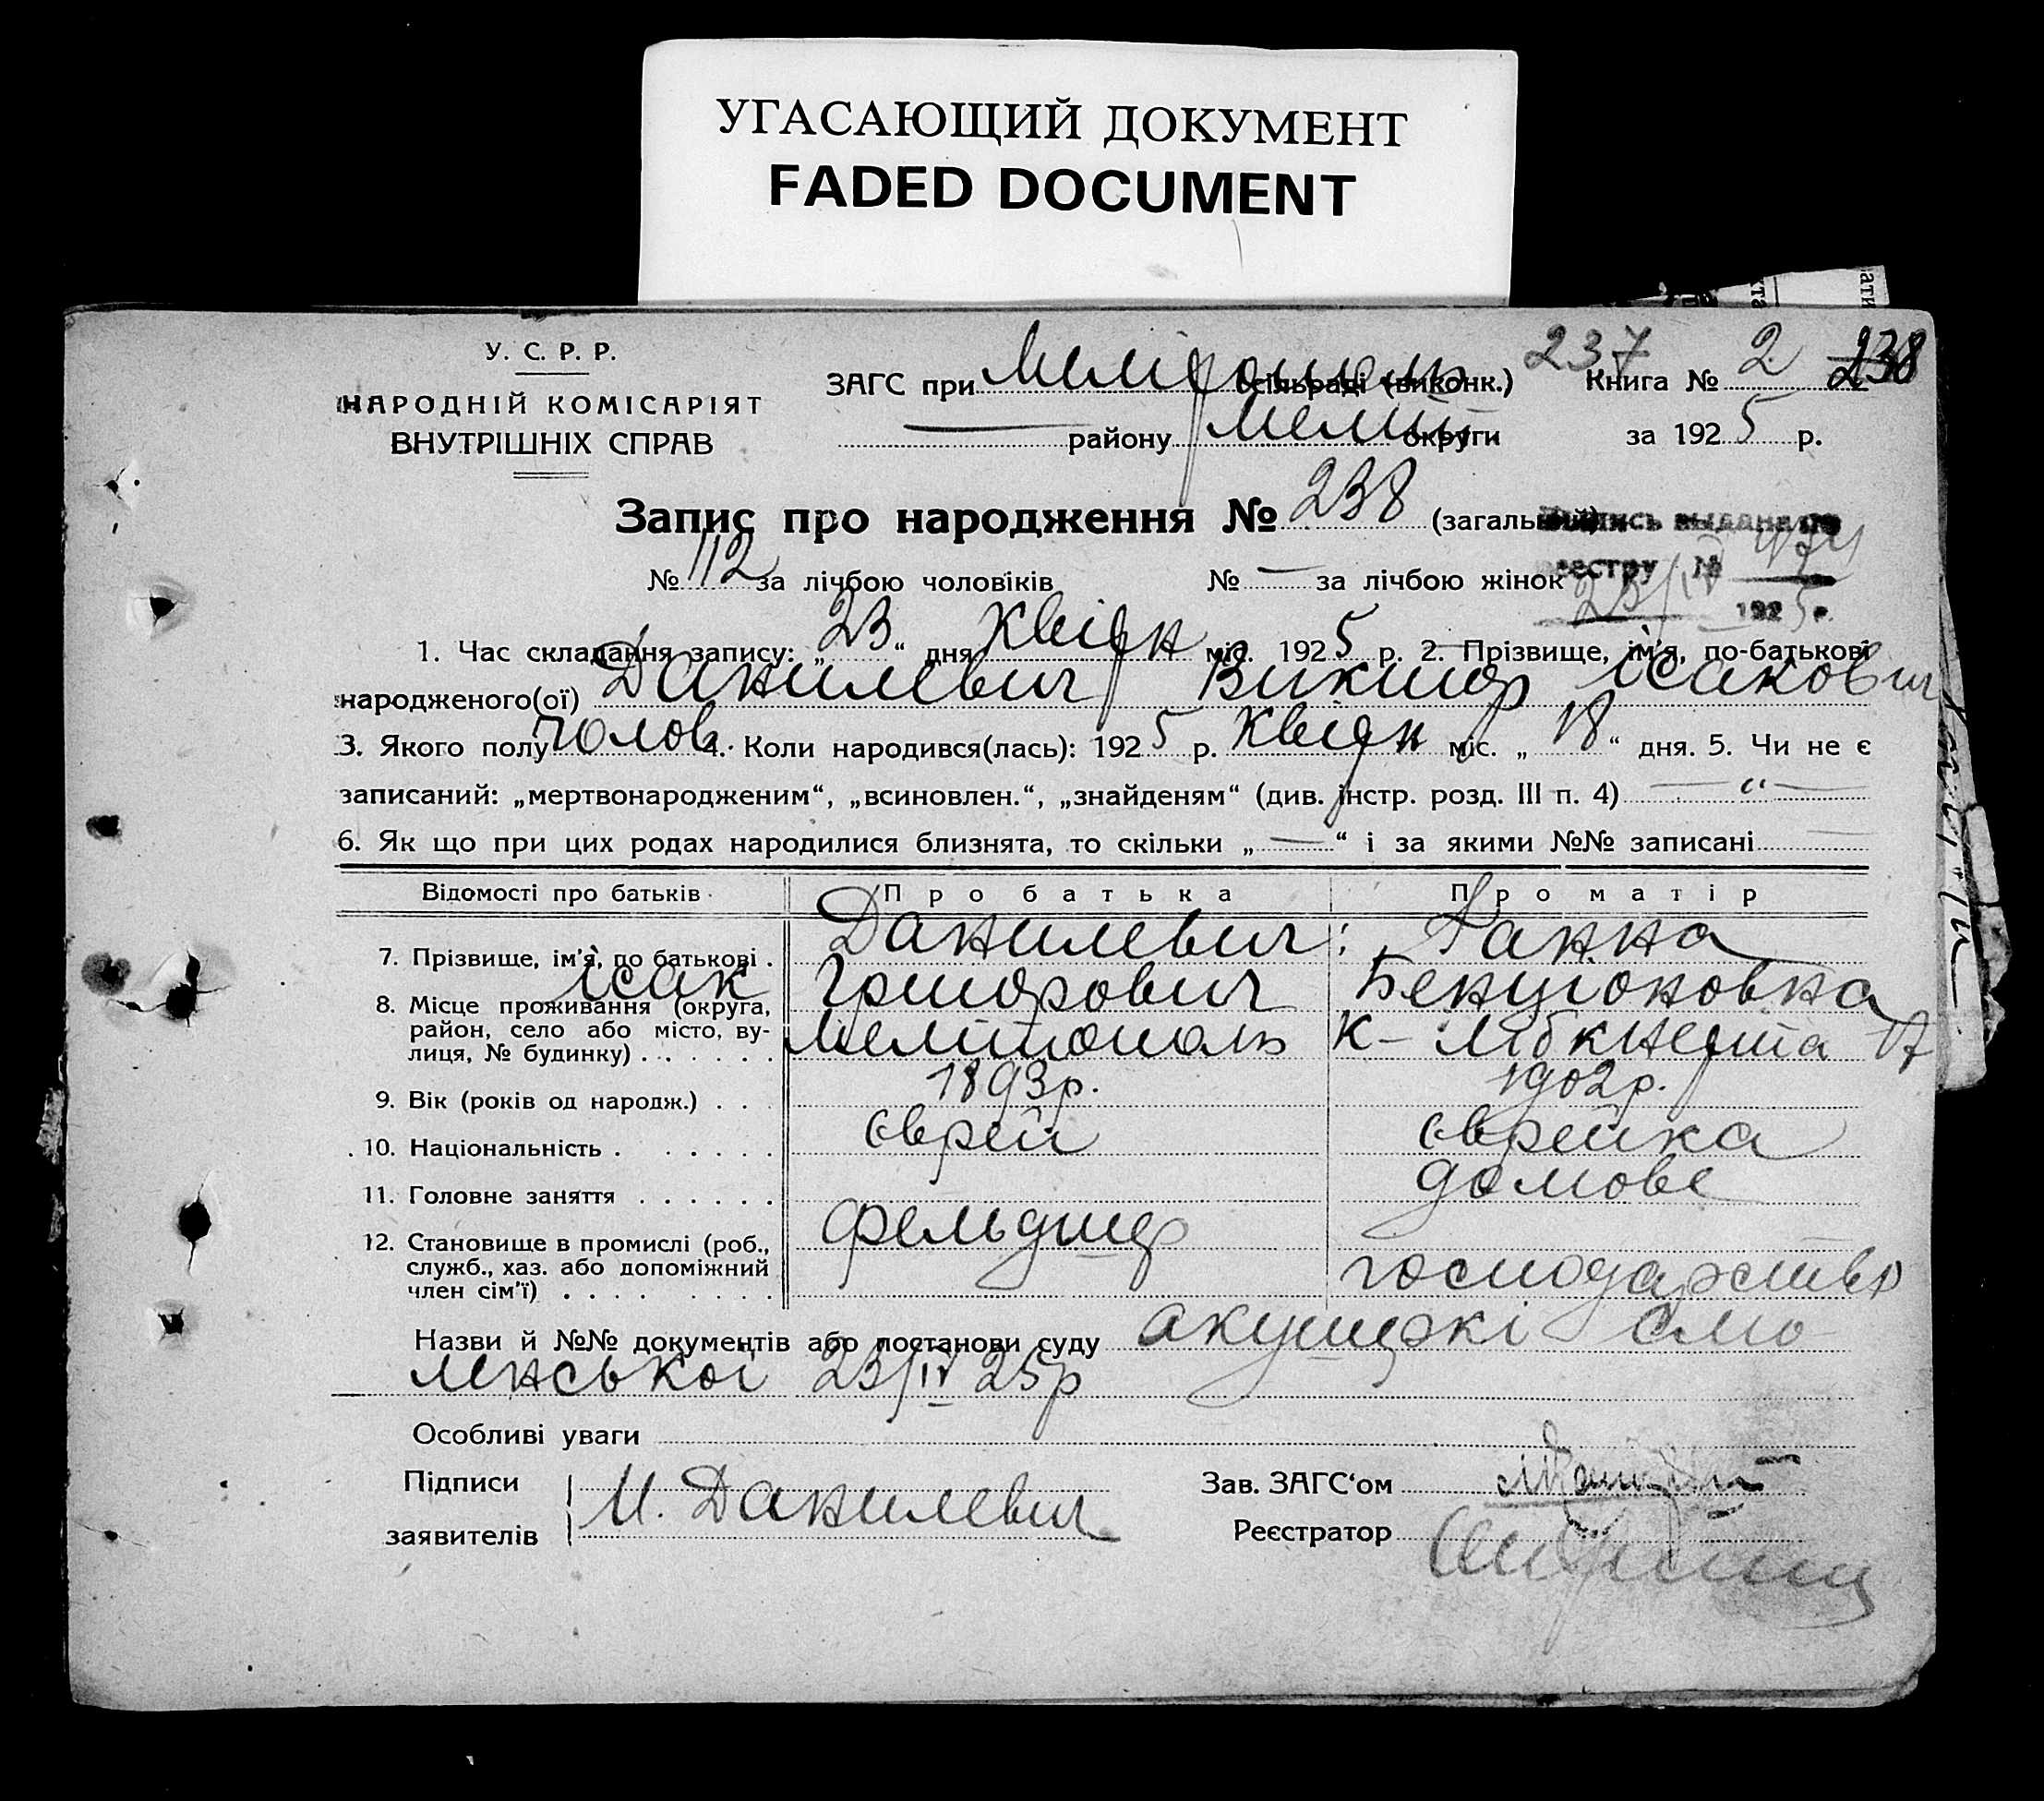 УГАСАЮЩИЙ ДОКУМЕНТ
FADED DOCUMENT
У. С. Р. Р.
НАРОДНІЙ КОМІСАРІЯТ
ВНУТРІШНІХ СПРАВ
ЗАГС при Мелітополь сільраді (виконк.)
237 Книга № 2 238
району Меліт округи за 1925 р.
Запис про народження № 238 (загальний)
№ 112 за лічбою чоловіків № — за лічбою жінок
выдана по
реестру №
23/IV 1925 г.
1. Час складання запису: „23“ дня Квітн міс. 1925 р. 2. Прізвище, ім'я, по-батькові
народженого(ої) Данилевич Виктор Ісакович
3. Якого полу чолов. 4. Коли народився(лась): 1925 р. Квітн міс. „18“ дня. 5. Чи не є
записаний: „мертвонародженим“, „всиновлен.“, „знайденям“ (див. інстр. розд. III п. 4) — “ —
6. Як що при цих родах народилися близнята, то скільки „—“ і за якими №№ записані
Відомості про батьків Про батька Про матір
7. Прізвище, ім'я, по батькові . Данилевич : Ганна
Ісак Григорович Бенционовна
8. Місце проживання (округа,
район, село або місто, ву-
лиця, № будинку) . . . . . . Мелітополь К – Лібкнехта 17
9. Вік (років од народж.) . . . 1893р. 1902р.
10. Національність . . . . . . Єврей Єврейка
11. Головне заняття . . . . . . домове
12. Становище в промислі (роб.,
служб., хаз. або допоміжний
член сім'ї) . . . . . . . . фельдшер господарство
Назви й №№ документів або постанови суду акушеркі Смо
ленської 23/IV 25р
Особливі уваги
Підписи
заявителів И. Данилевич
Зав. ЗАГС‘ом
Реєстратор